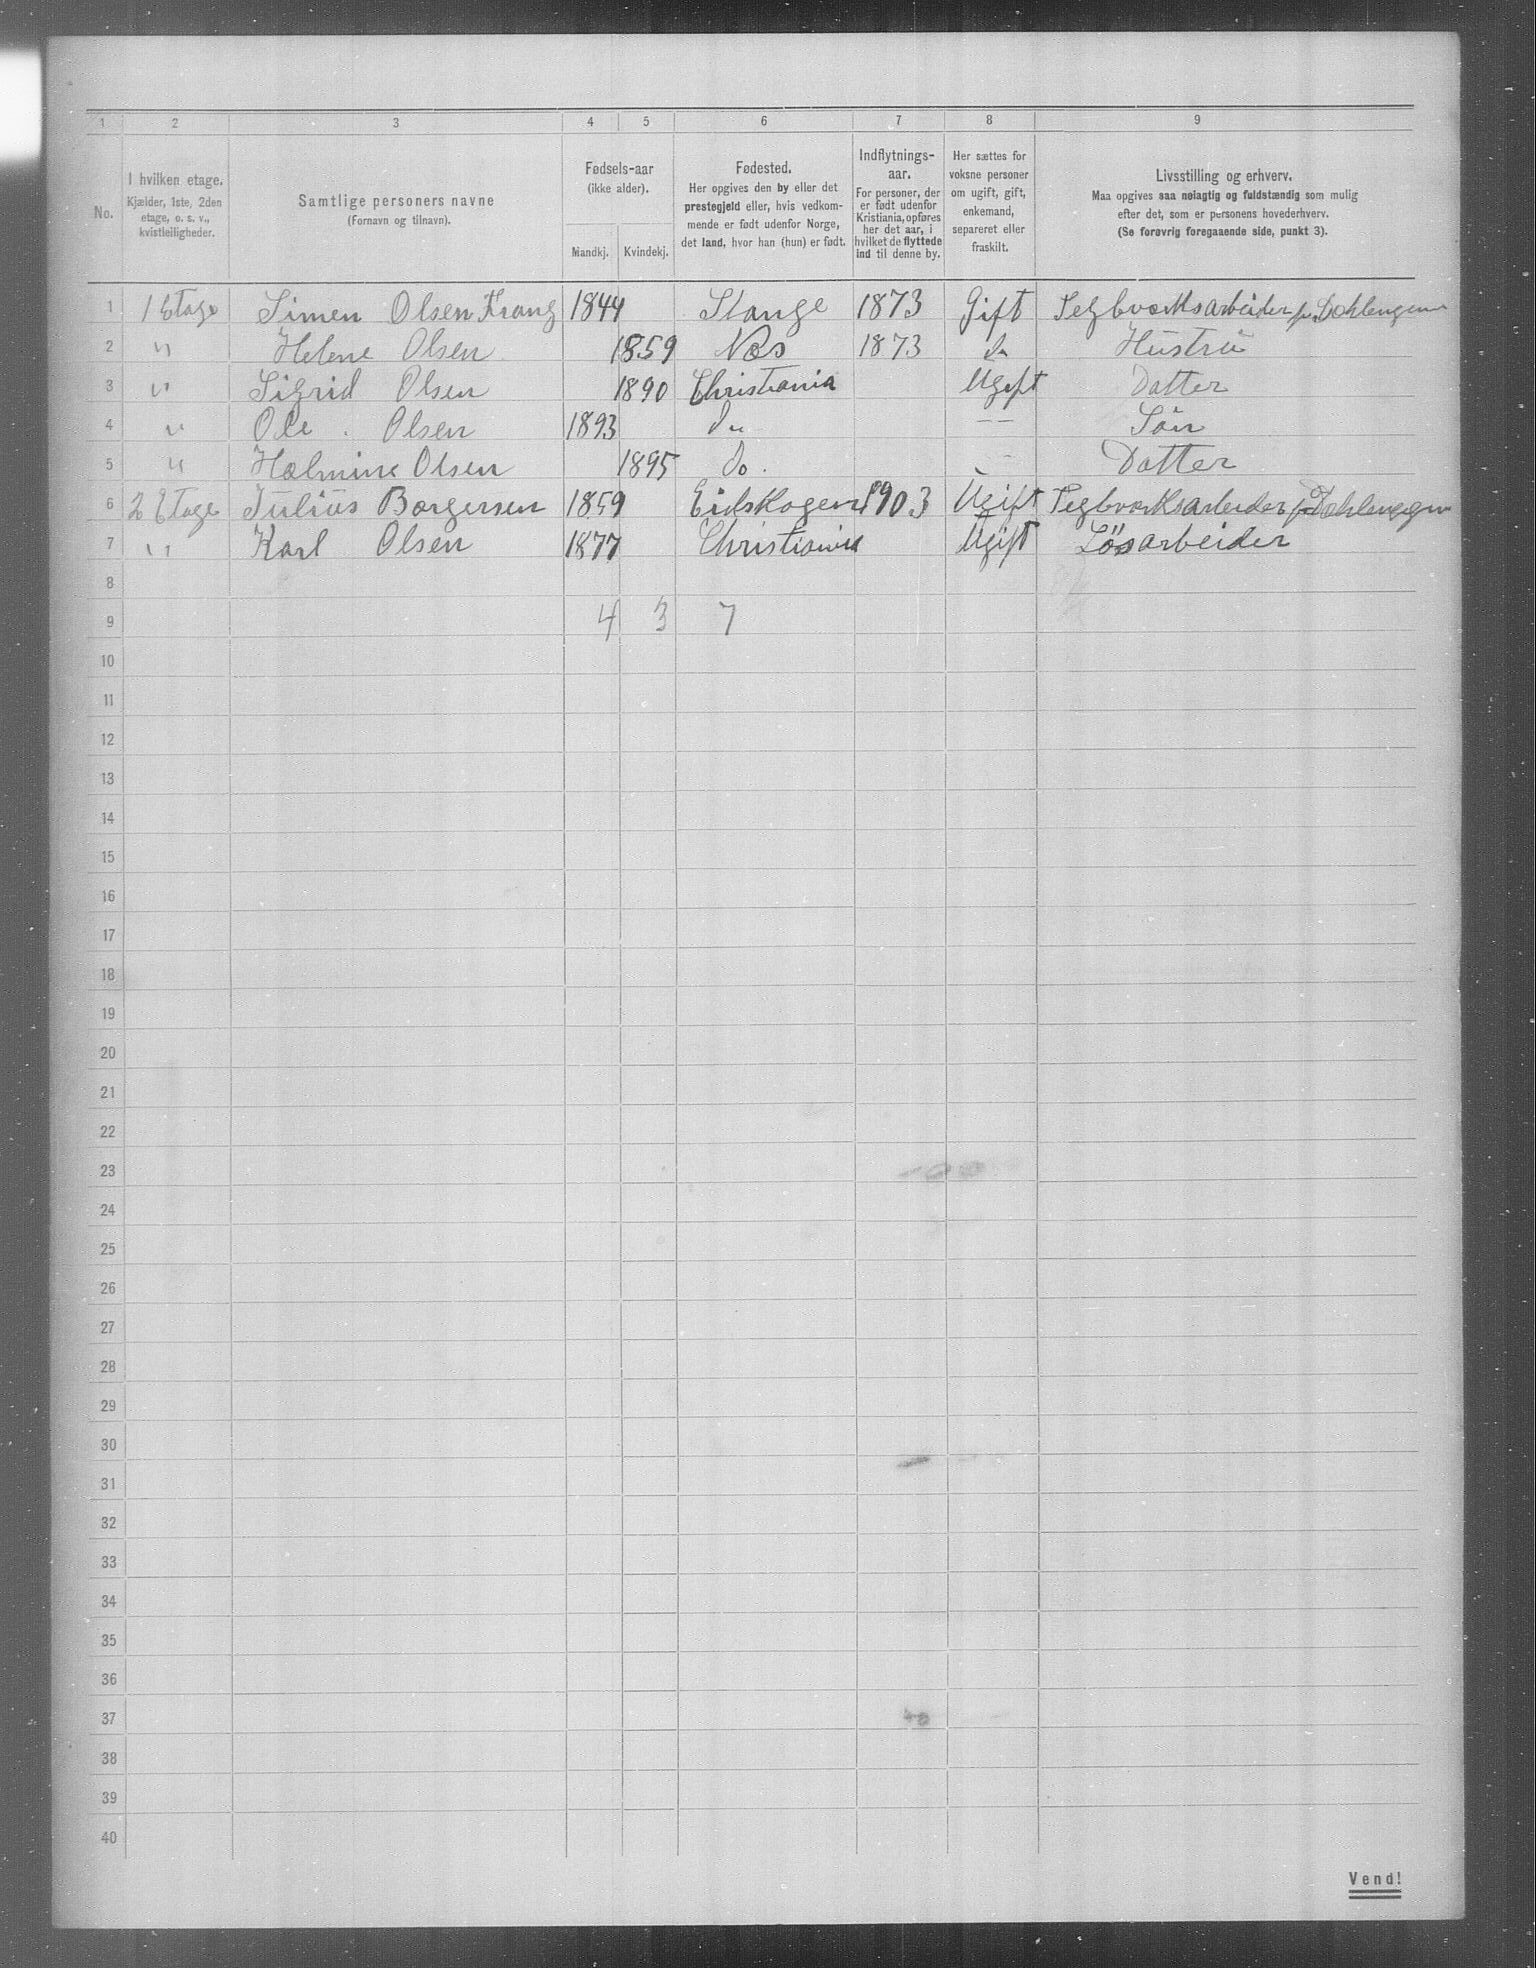 1 2 3 4 5 6 7 8 9
No.
I hvilken etage.
Kjælder, 1ste, 2den
etage, o. s. v.,
kvistleiligheder.
Samtlige personers navne
(Fornavn og tilnavn).
Fødsels-aar
(ikke alder).
Mandkj. Kvindekj.
Fødested.
Her opgives den by eller det
prestegjeld eller, hvis vedkom-
mende er født udenfor Norge,
det land, hvor han (hun) er født.
Indflytnings-
aar.
For personer, der
er født udenfor
Kristiania, opføres
her det aar, i
hvilket de flyttede
ind til denne by.
Her sættes for
voksne personer
om ugift, gift,
enkemand,
separeret eller
fraskilt.
Livsstilling og erhverv.
Maa opgives saa nøiagtig og fuldstændig som mulig
efter det, som er personens hovederhverv.
(Se forøvrig foregaaende side, punkt 3).
1 1 Etage Simen Olsen Krang 1844 Stange 1873 Gift Teglværksarbeider
2 " Helene Olsen 1859 Næs 1873 do Hustru
3 " Sigrid Olsen 1890 Christiania Ugift Datter
4 " Ole Olsen 1893 Do — Søn
5 " Halmine Olsen 1895 Do. — Datter
6 2 Etage Julius Borgersen 1859 Eidskogen 1903 Ugift Teglværksarbeider
7 " Karl Olsen 1877 Christiania Ugift Løsarbeider
8
9 4 3 7
10
11
12
13
14
15
16
17
18
19
20
21
22
23
24
25
26
27
28
29
30
31
32
33
34
35
36
37
38
39
40
Vend!